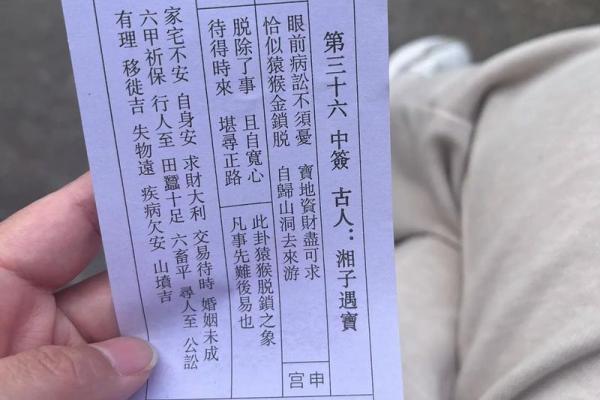 第三十六 中簽 古人：湘子遇寶
眼前病訟不須憂 寶地資財盡可求
恰似猿猴金鎖脫 自歸山洞去來游
申宮
脫除了事 且自寬心
待得時來 堪尋正路
此卦猿猴脫鎖之象
凡事先難後易也
家宅不安 自身安 求財大利 交易待時 婚姻未成
六甲祈保 行人至 田蠶十足 六畜平 尋人至 公訟
有理 移徙吉 失物遠 疾病欠安 山墳吉